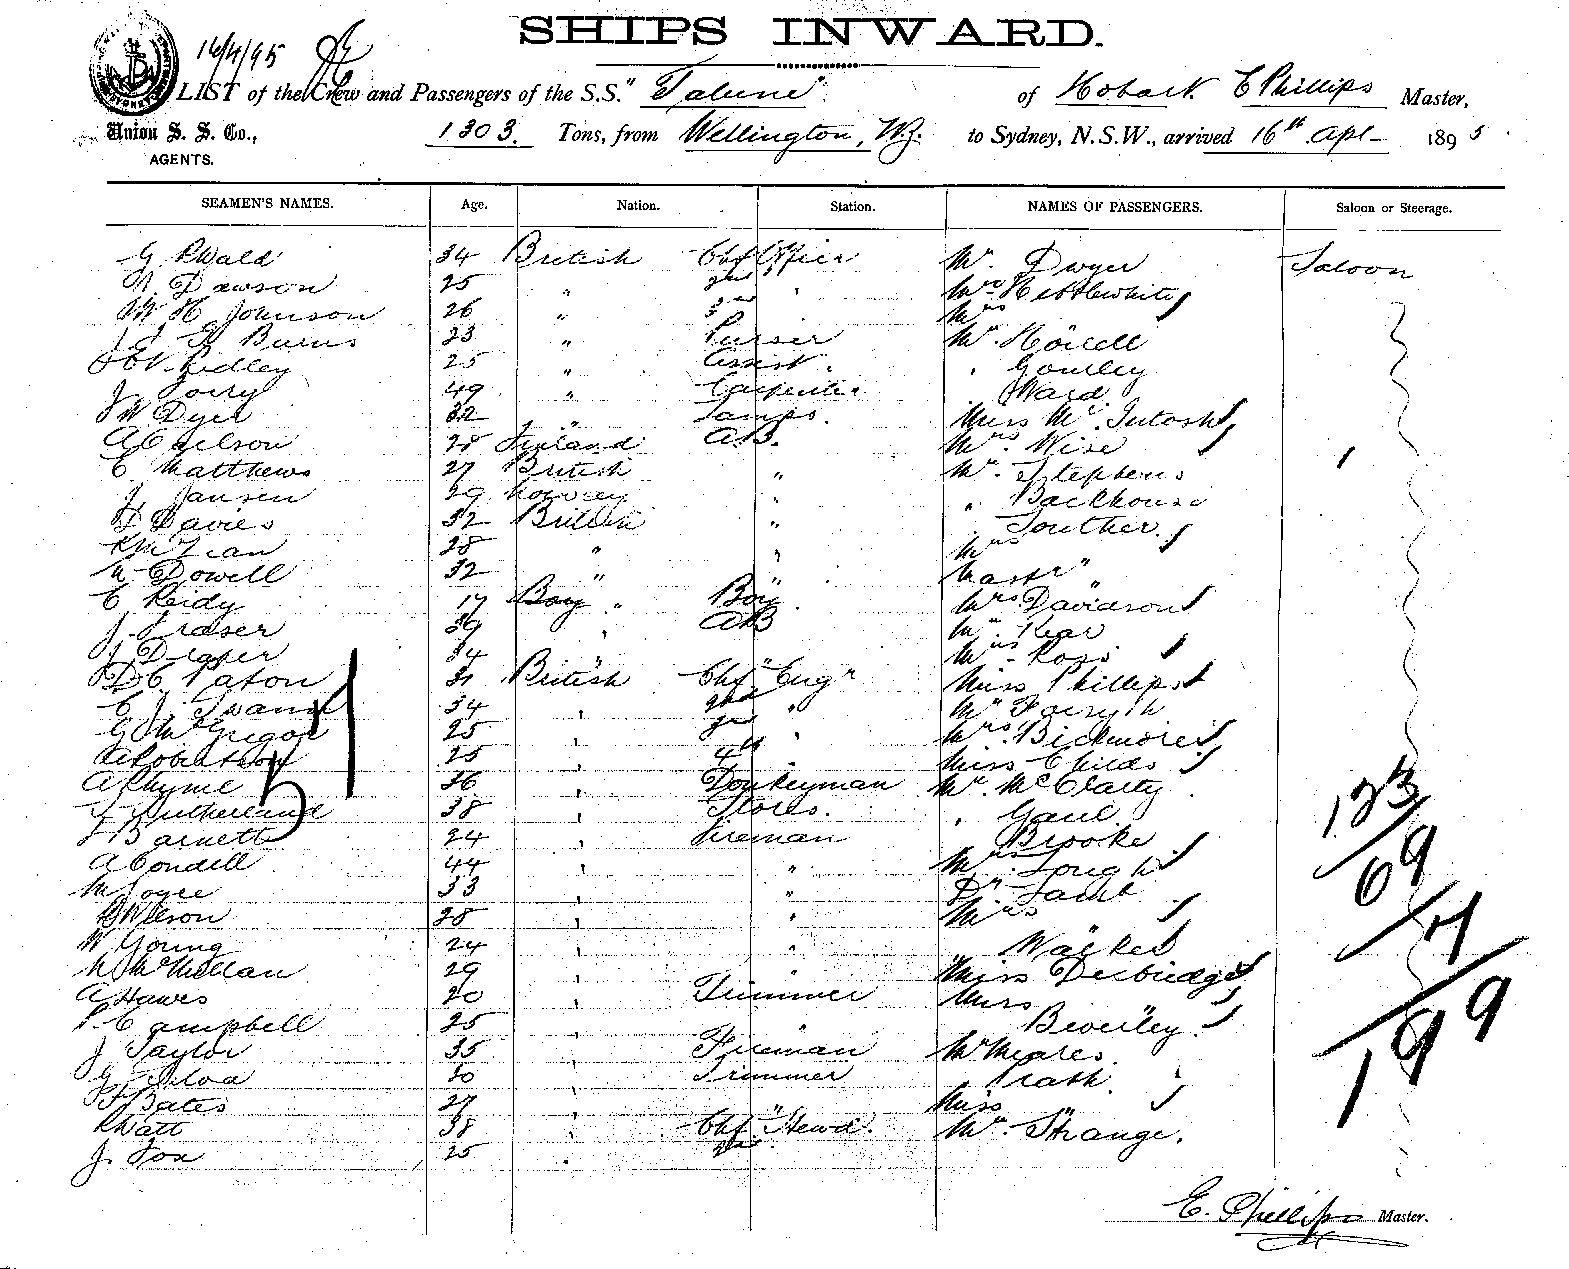 SHIPS INWARD.
16/4/95
LIST of the Crew and Passengers of the S.S. "Talune" of Hobart. E Phillips Master,
Union S. S. Co., 1303. Tons, from Wellington, N.Z. to Sydney, N.S.W., arrived 16th Apl- 1895
AGENTS.
SEAMEN'S NAMES. Age. Nation. Station. NAMES OF PASSENGERS. Saloon or Steerage.
34 British Chf Officer Mr. Dwyer Saloon
Dawson 25 " 2nd " Mr Kettlewhite
H Johnson 26 " 3rd Mrs
Burns 23 " Purser Mr. Howell
Ridley 25 " Assist. " Gourley
J 49 " Carpenter Ward
W Dyer 32 " Lamps. Miss Mc Intosh
28 Finland A.B. Mrs Wise
E Matthews 27 British " Mr. Stephens
J Jansen 29 Norway " " Backhouse
D Davies 32 British " Souther.
28 " " Mrs
Dowell 32 " " Master "
E Reidy 17 Boy " Boy. Mrs Davidson
J Fraser 39 " AB Mr. Kear
J Draper 34 " " Mrs Ross
D C Paton 31 British Chf Eng Miss Phillips
E J 34 " 2nd " Mr Forsyth
G McGregor 25 " 3rd " Mrs. Bickmore
A Robertson 25 " 4th Miss Childs
A Rhyme 36 " Donkeyman Mr. McClarty
Sutherland 38 " Stores. " Gaul
Barnett 24 Fireman Brooke
123
A Condell 44 " Mrs. Lough
69
M Joyce 33 " Dr. Lamb
Wilson 28 " " Mrs
7
W Young 24 " " Walker
McMillan 29 " Miss Derbridge
A Hawes 20 Trimmer Miss
Campbell 25 " " Beverley
199
J Taylor 35 " Fireman Mr Meares.
Silva 30 " Trimmer
Bates 27 " " Miss "
Watt 38 " Chf Stewd. Mr. Strange.
J. Fox 25 " 2nd
E. Phillips Master.